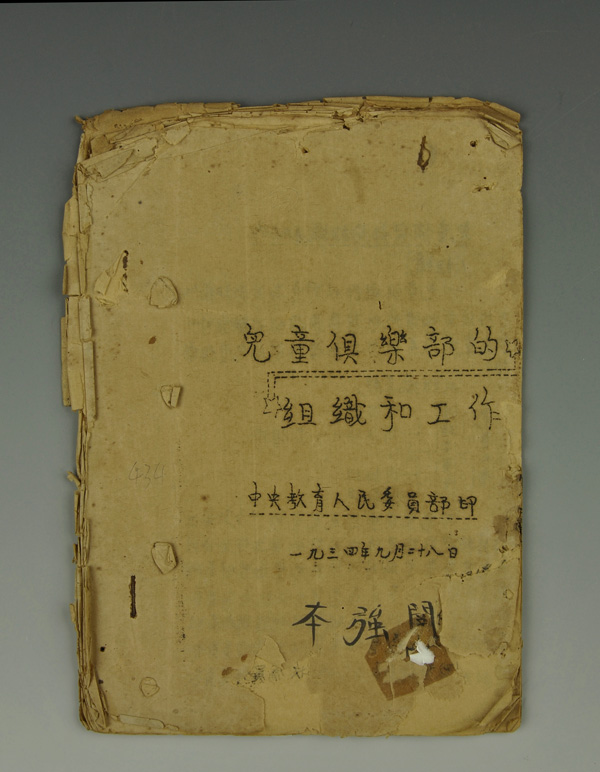 兒童俱樂部的
組織和工作
中央教育人民委員部印
一九三四年九月二十八日
本強
434